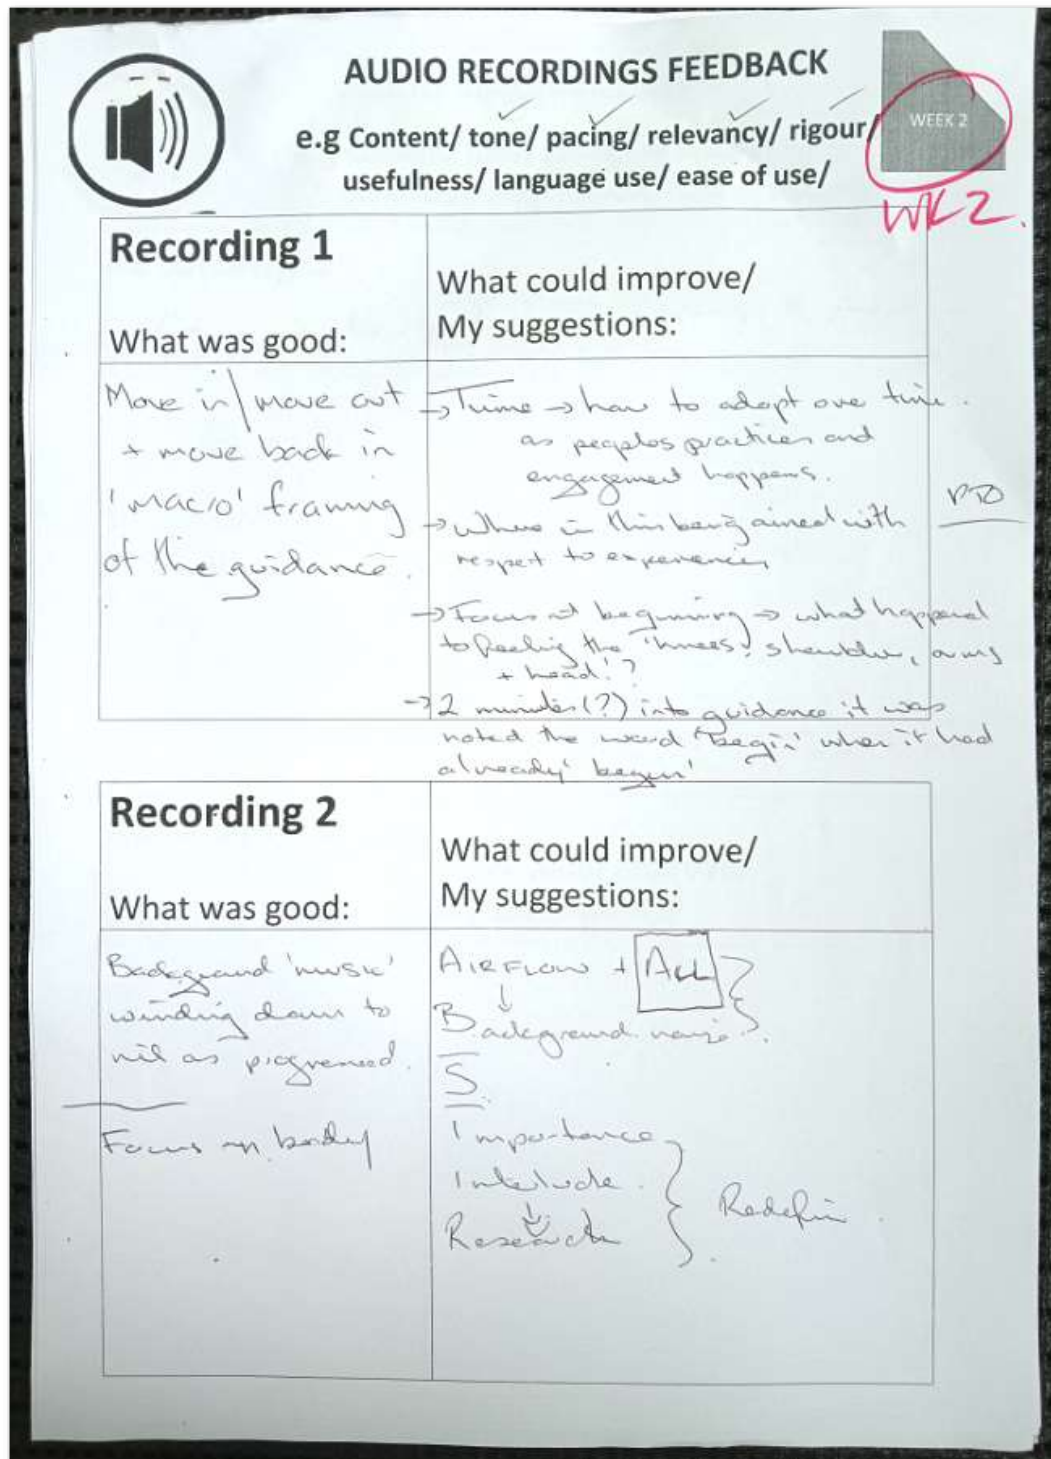 AUDIO RECORDINGS FEEDBACK
e.g Content/ tone/ pacing/ relevancy/ rigour/
usefulness/ language use/ ease of use/
WEEK 2
WK2.
Recording 1
What was good:
What could improve/
My suggestions:
Move in/move out
+ move back in
'macro' framing
of the guidance.
→ Time → how to adapt over time.
as peoples practices and
engagement happens.
PTO
→ Where is this being aimed with
respect to experience
→ Focus at beginning → what happened
to feeling the 'knees, shoulder, arms
+ head'?
→ 2 minutes(?) into guidance it was
noted the word 'begin' when it had
already 'begun'
Recording 2
What was good:
What could improve/
My suggestions:
Background 'music'
winding down to
nil as progressed.
Focus on body
AIRFLOW + ALL
↓
Background noise.
S
Importance
Interlude
↓
Research
Redefine.